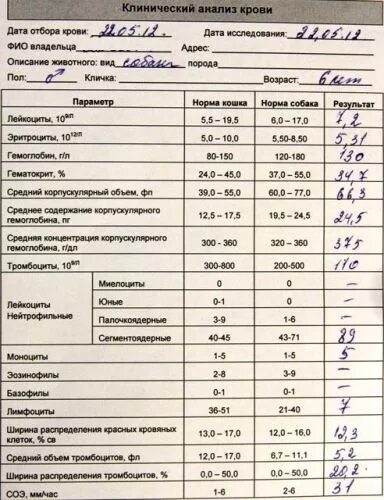 Клинический анализ крови
Дата отбора крови: 22.05.12 Дата исследования: 22.05.12
ФИО владельца Адрес:
Описание животного: вид собака порода
Пол: ♂ Кличка: Возраст: 6 лет
Параметр Норма кошка Норма собака Результат
Лейкоциты, 10⁹/л 5,5 – 19,5 6,0 – 17,0 7,2
Эритроциты, 10¹²/л 5,0 – 10,0 5,50-8,50 5,31
Гемоглобин, г/л 80-150 120-180 130
Гематокрит, % 24,0 – 45,0 37,0 – 55,0 34,7
Средний корпускулярный объем, фл 39,0 – 55,0 60,0 – 77,0 66,3
Среднее содержание корпускулярного гемоглобина, пг 12,5 – 17,5 19,5 – 24,5 24,5
Средняя концентрация корпускулярного гемоглобина, г/дл 300 - 360 320 – 360 375
Тромбоциты, 10⁹/л 300-800 200-500 110
Лейкоциты Нейтрофильные
Миелоциты 0 0 –
Юные 0-1 0 –
Палочкоядерные 3-9 1-6 –
Сегментоядерные 40-45 43-71 89
Моноциты 1-5 1-5 5
Эозинофилы 2-8 3-9 –
Базофилы 0-1 0-1 –
Лимфоциты 36-51 21-40 7
Ширина распределения красных кровяных клеток, % св 13,0 – 17,0 12,0 – 16,0 12,3
Средний объем тромбоцитов, фл 12,0 – 17,0 6,7 – 11,1 5,2
Ширина распределения тромбоцитов, % 0,0 – 50,0 0,0 – 50,0 20,2
СОЭ, мм/час 1-6 2-6 31